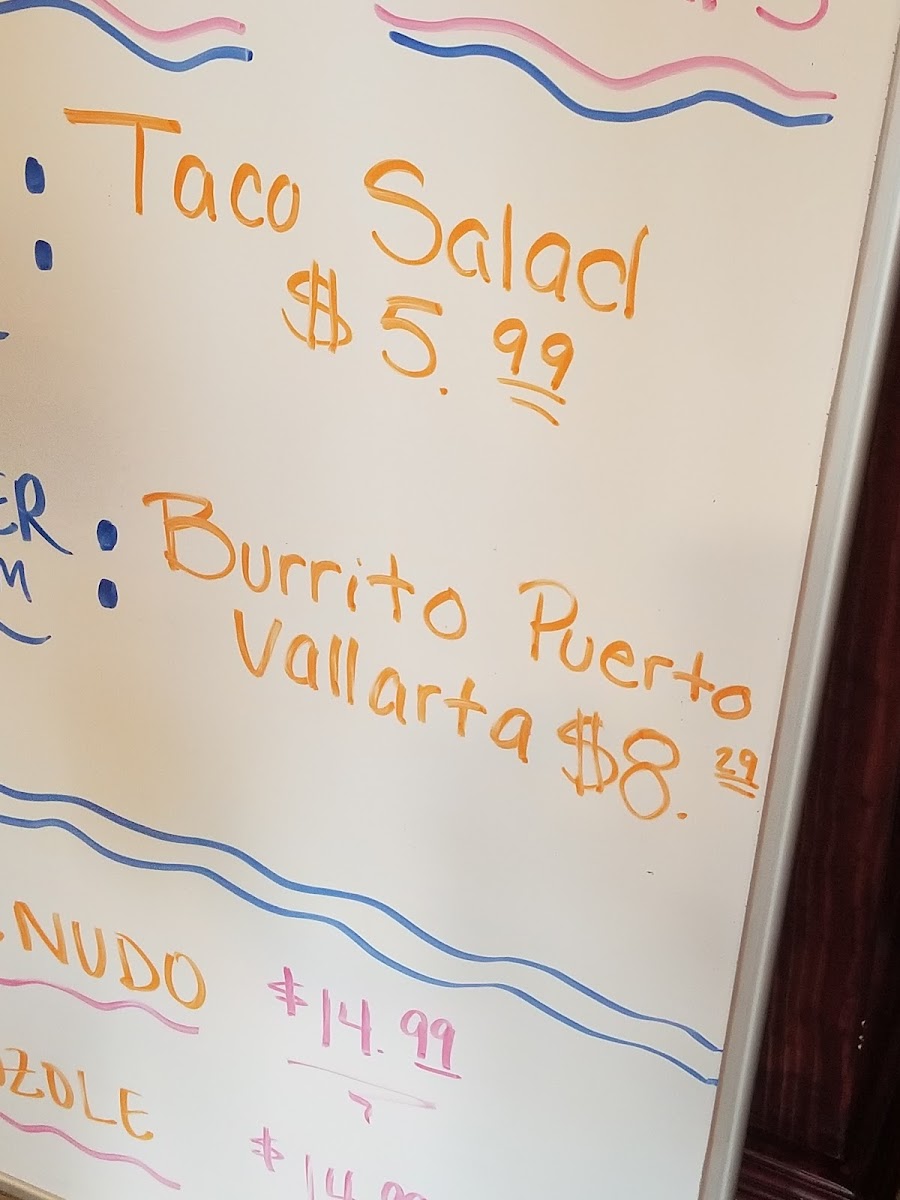 : Taco Salad
$5.99
ER : Burrito Puerto
M Vallarta $8.29
NUDO $14.99
ZOLE
$14.99